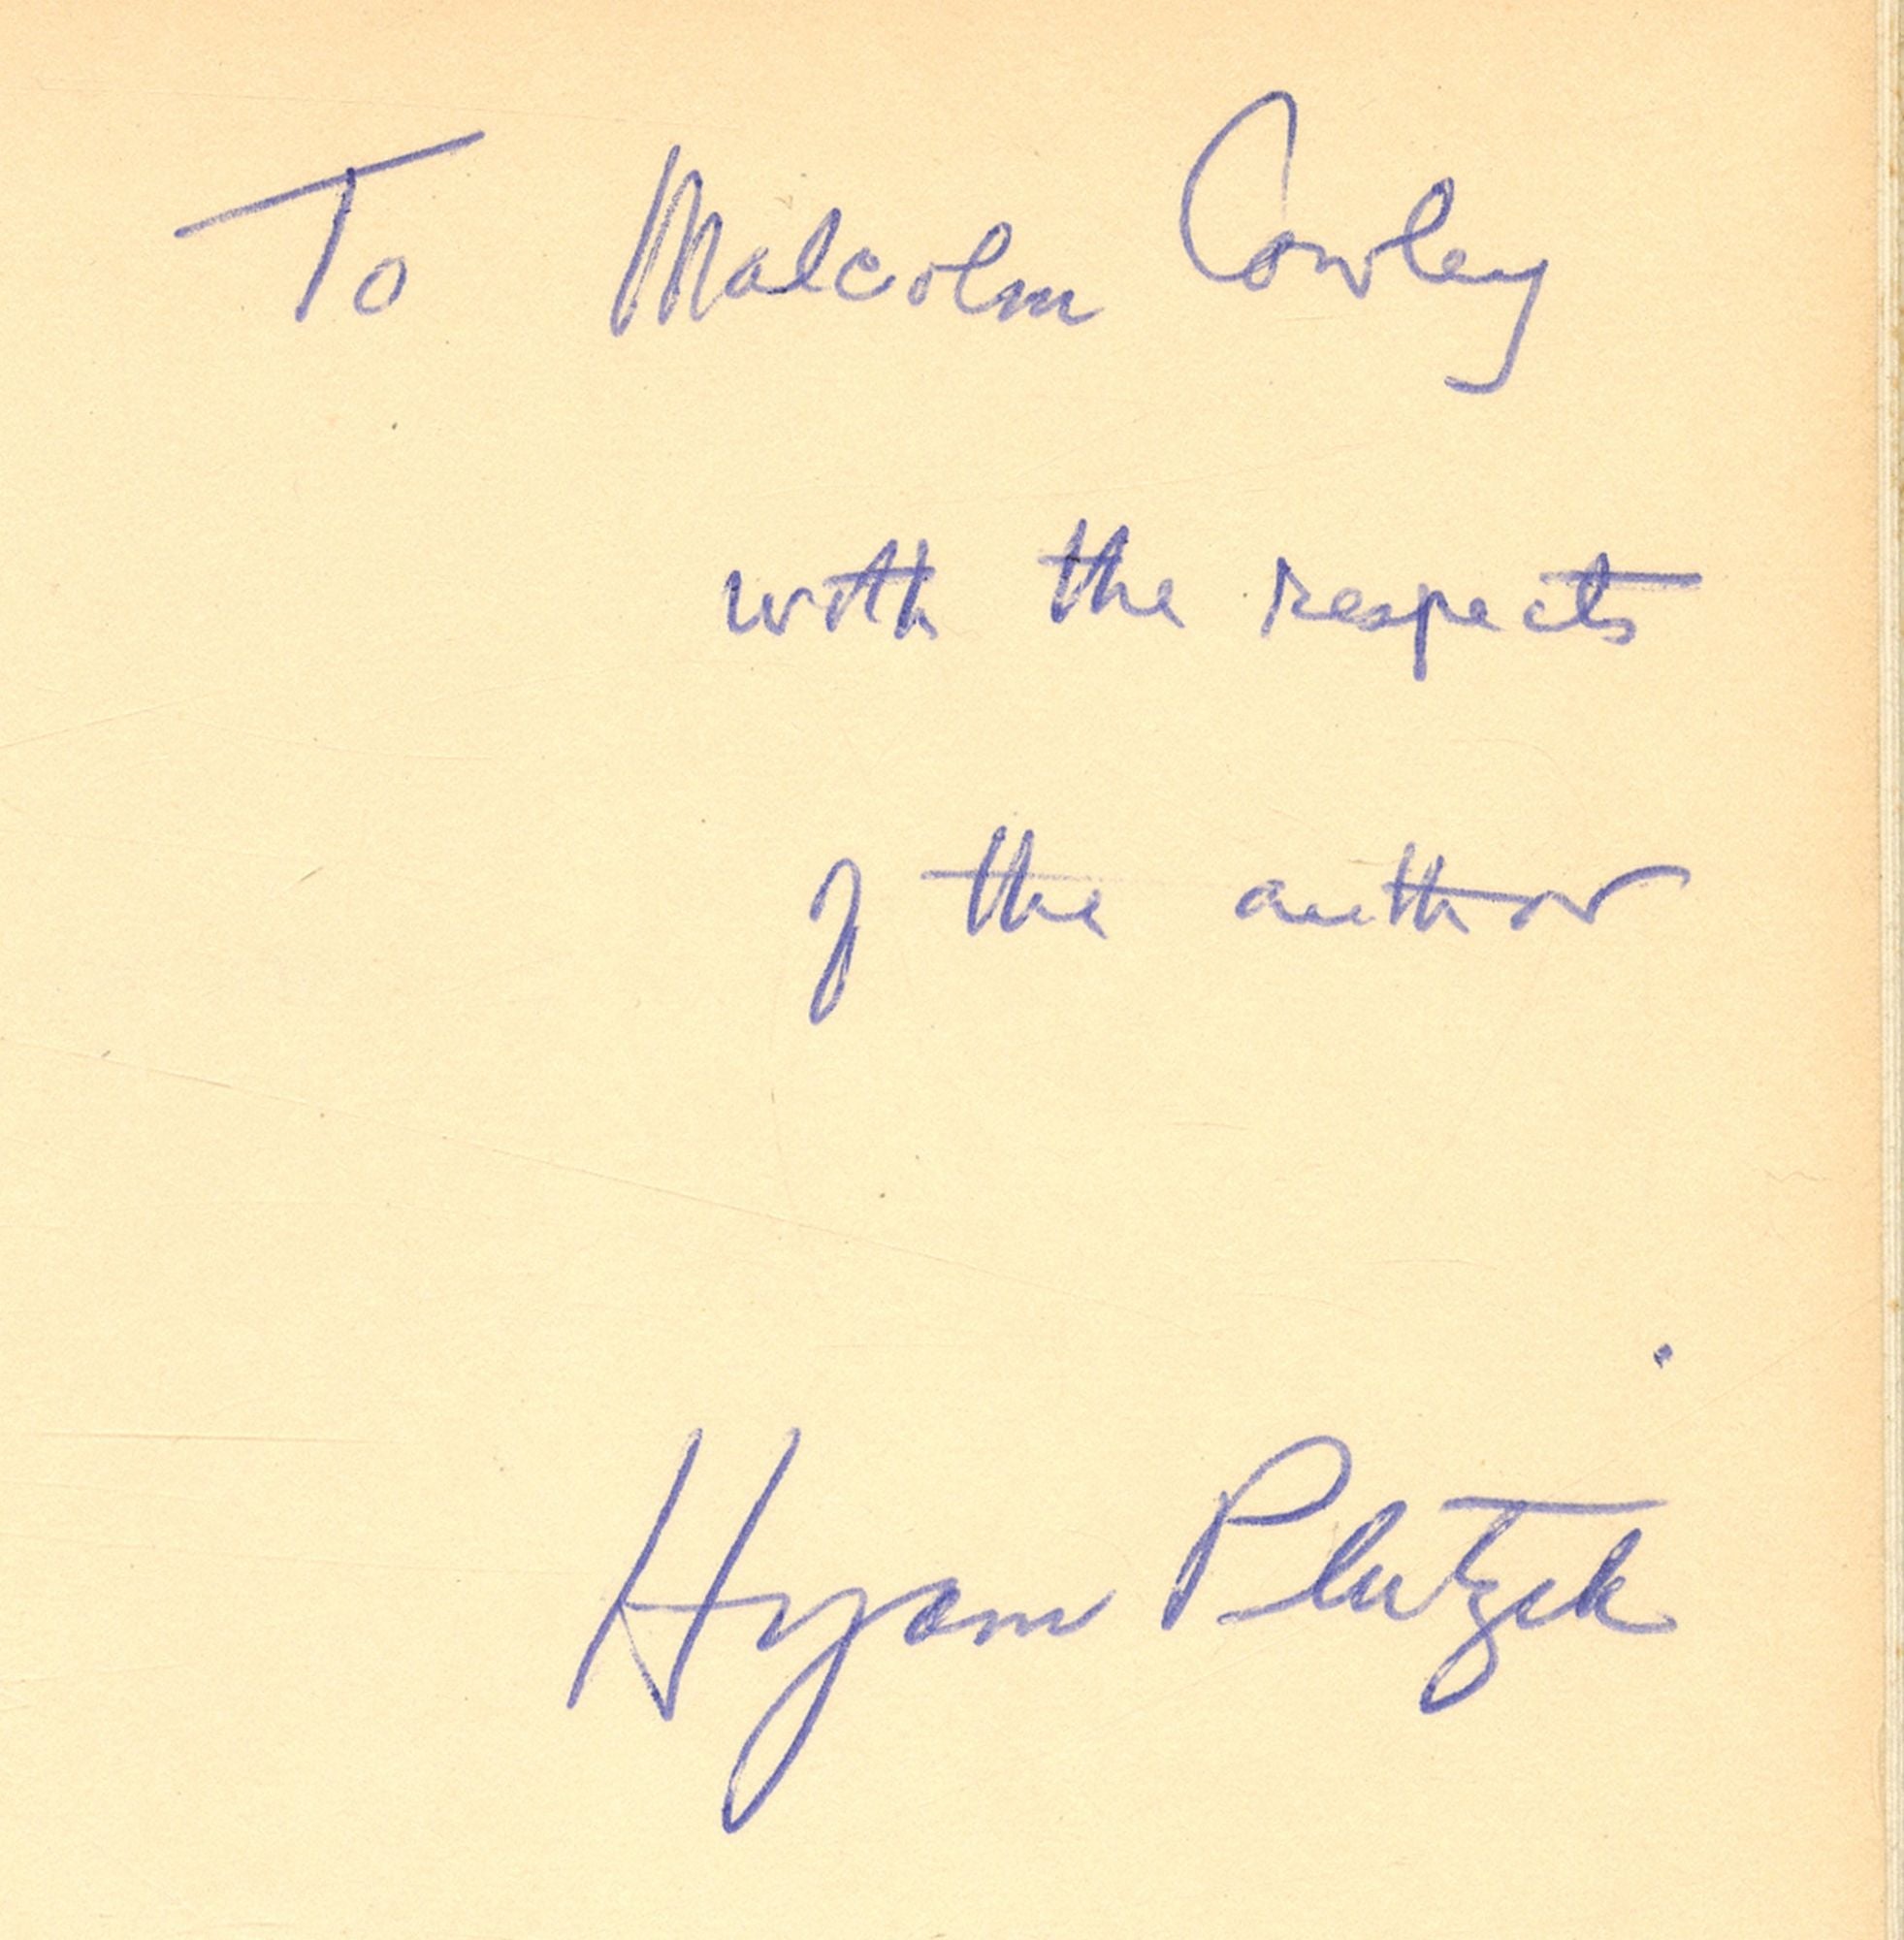 To Malcolm Cowley
with the respects
of the author
Hyam Plutzik